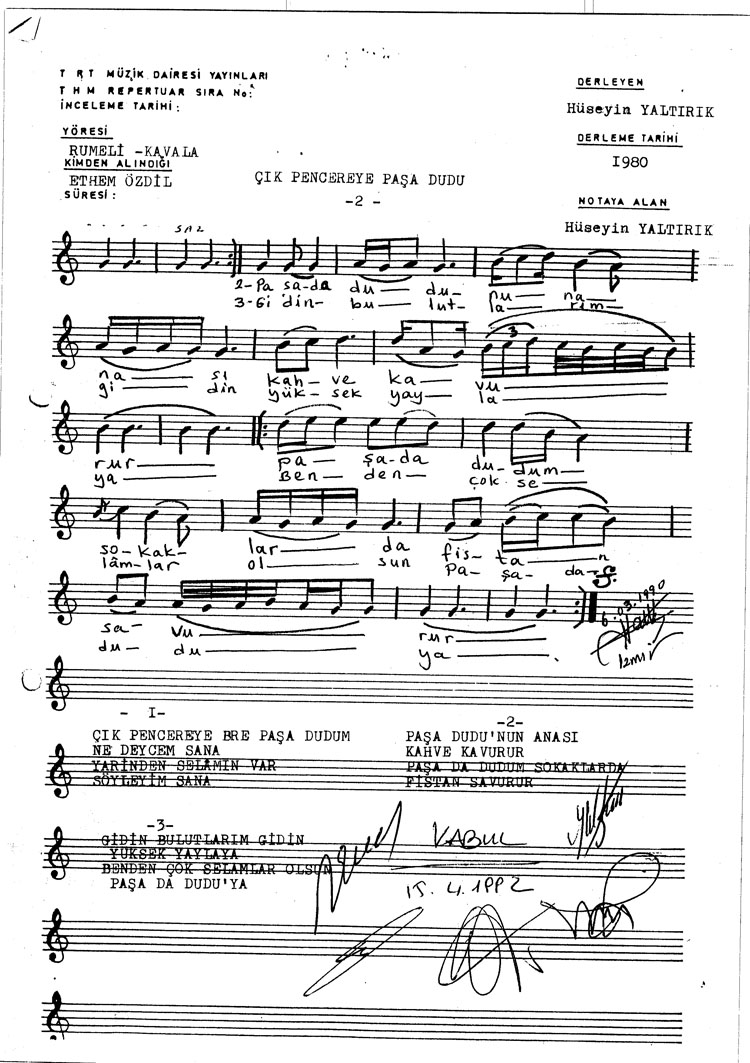 T R T MÜZİK DAİRESİ YAYINLARI
T H M REPERTUAR SIRA No:
İNCELEME TARİHİ :
DERLEYEN
Hüseyin YALTIRIK
DERLEME TARİHİ
1980
YÖRESİ
RUMELİ -KAVALA
KİMDEN ALINDIĞI
ETHEM ÖZDİL
SÜRESİ :
ÇIK PENCEREYE PAŞA DUDU
-2 -
NOTAYA ALAN
Hüseyin YALTIRIK
SAZ
2-Pa sa-da du du- nu na
3-Gi din- bu lut- la rım
3
na sı kah- ve ka vu
gi din yük- sek yay- la
rur pa- şa-da du- dum
ya Ben- den- çok se
so- kak- lar da fis- ta n
lâm- lar ol sun Pa- şa- da-
sa- vu rur
du- du ya
6.03.1990
İzmir
- I-
ÇIK PENCEREYE BRE PAŞA DUDUM
NE DEYCEM SANA
YARİNDEN SELÂMIN VAR
SÖYLEYİM SANA
-2-
PAŞA DUDU'NUN ANASI
KAHVE KAVURUR
PAŞA DA DUDUM SOKAKLARDA
FİSTAN SAVURUR
-3-
GİDİN BULUTLARIM GİDİN
YÜKSEK YAYLAYA
BENDEN ÇOK SELAMLAR OLSUN
PAŞA DA DUDU'YA
KABUL
15.4.1992